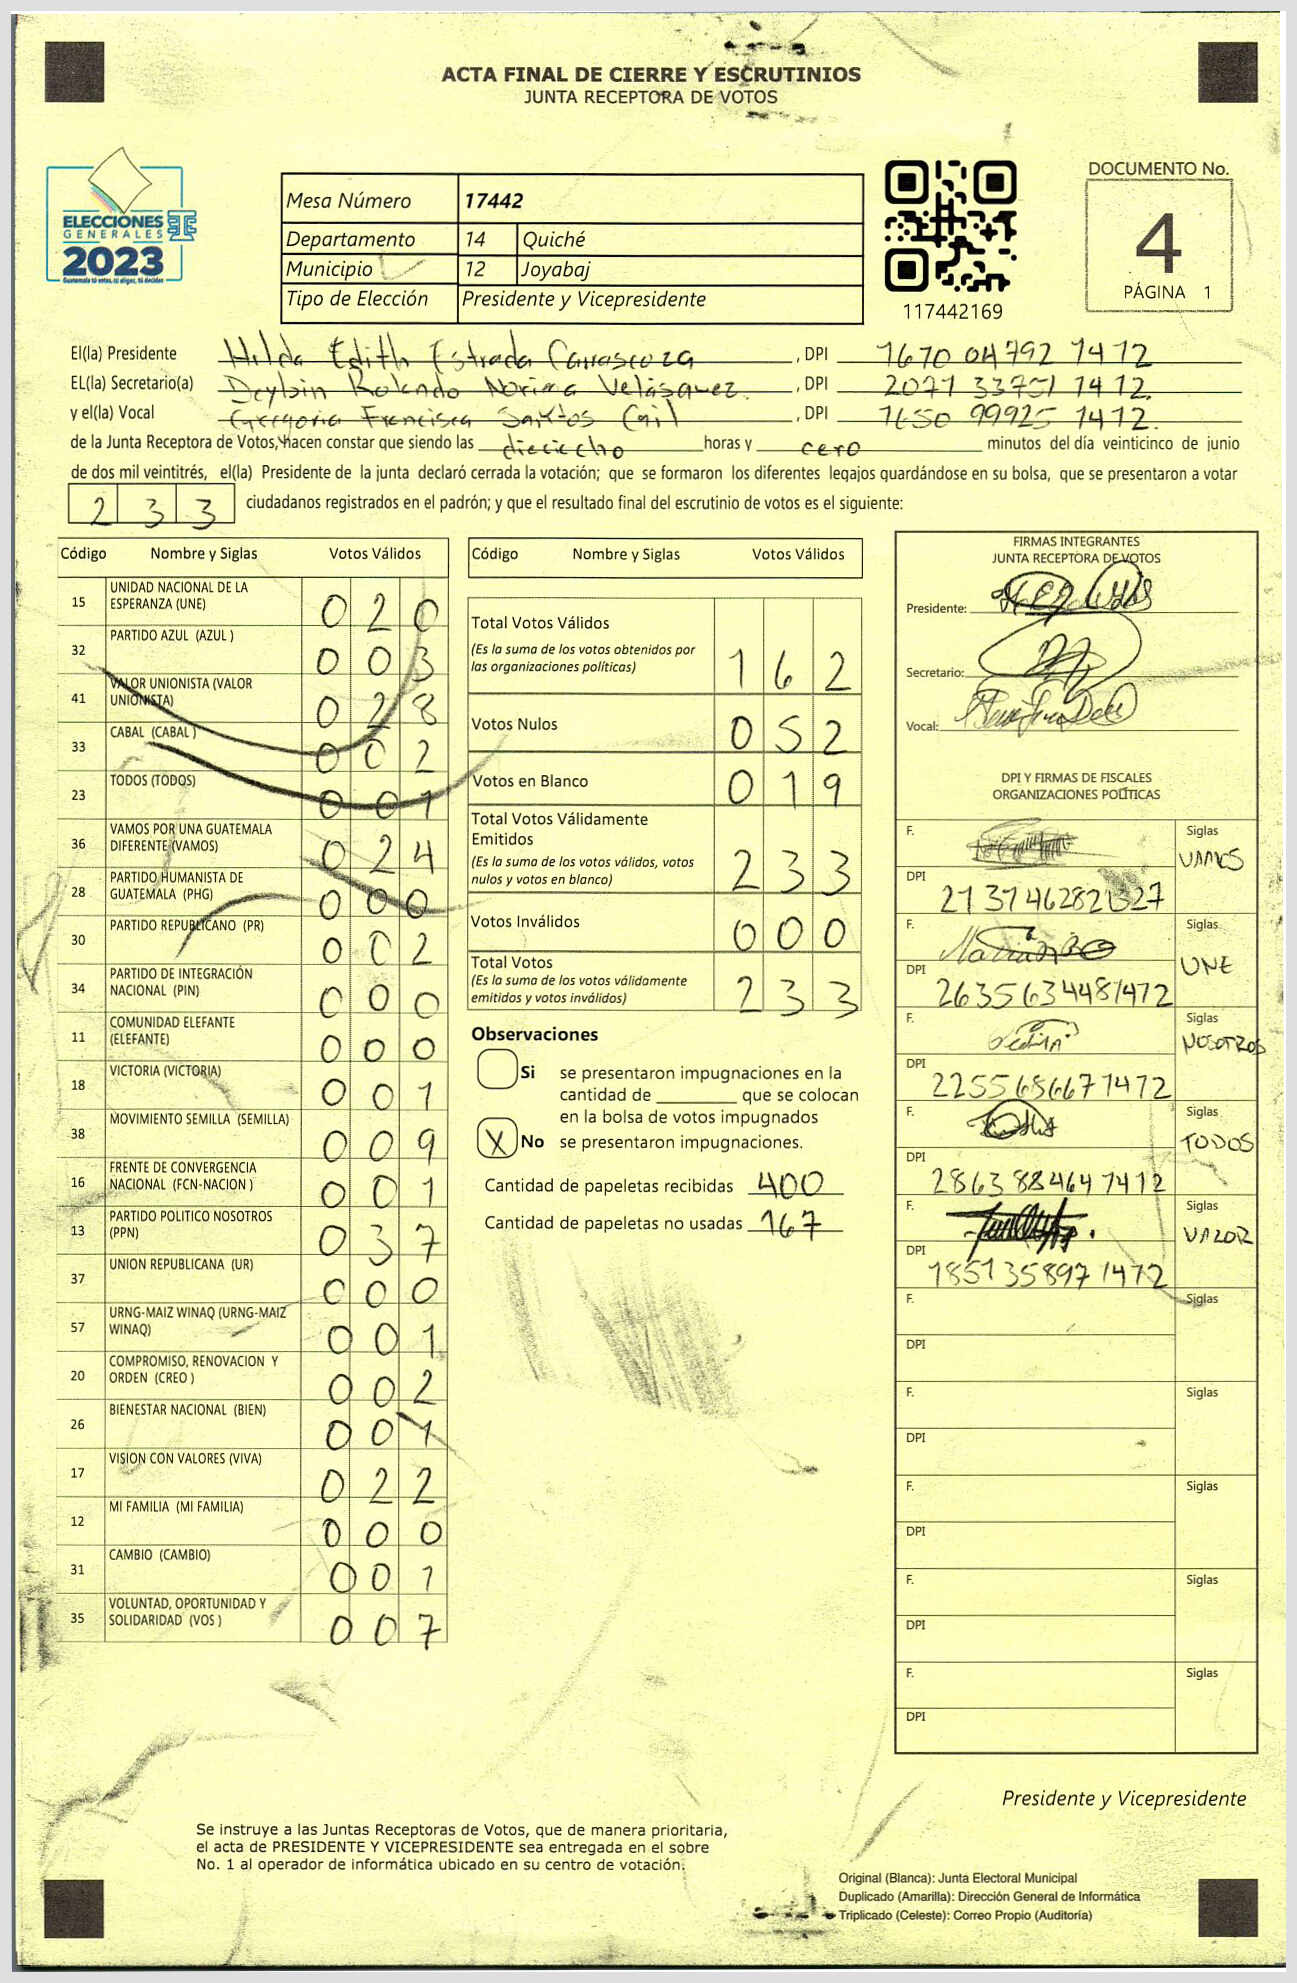 ACTA FINAL DE CIERRE Y ESCRUTINIOS
JUNTA RECEPTORA DE VOTOS
ELECCIONES
GENERALES
2023
Guatemala tú votas, tú eliges, tú decides
Mesa Número 17442
Departamento 14 Quiché
Municipio 12 Joyabaj
Tipo de Elección Presidente y Vicepresidente
117442169
DOCUMENTO No.
4
PÁGINA 1
El(la) Presidente Hilda Edith Estrada Carrascoza, DPI 1670 04792 1412
EL(la) Secretario(a) Deybin Rolando Noriega Velásquez, DPI 2071 33751 1412
y el(la) Vocal Gregoria Francisca Santos, DPI 1650 99925 1412.
de la Junta Receptora de Votos, hacen constar que siendo las dieciocho horas y cero minutos del día veinticinco de junio
de dos mil veintitrés, el(la) Presidente de la junta declaró cerrada la votación; que se formaron los diferentes legajos guardándose en su bolsa, que se presentaron a votar
2 3 3 ciudadanos registrados en el padrón; y que el resultado final del escrutinio de votos es el siguiente:
Código Nombre y Siglas Votos Válidos
15 UNIDAD NACIONAL DE LA ESPERANZA (UNE) 0 2 0
32 PARTIDO AZUL (AZUL ) 0 0 3
41 VALOR UNIONISTA (VALOR UNIONISTA) 0 2 8
33 CABAL (CABAL ) 0 0 2
23 TODOS (TODOS) 0 0 1
36 VAMOS POR UNA GUATEMALA DIFERENTE (VAMOS) 0 2 4
28 PARTIDO HUMANISTA DE GUATEMALA (PHG) 0 0 0
30 PARTIDO REPUBLICANO (PR) 0 0 2
34 PARTIDO DE INTEGRACIÓN NACIONAL (PIN) 0 0 0
11 COMUNIDAD ELEFANTE (ELEFANTE) 0 0 0
18 VICTORIA (VICTORIA) 0 0 1
38 MOVIMIENTO SEMILLA (SEMILLA) 0 0 9
16 FRENTE DE CONVERGENCIA NACIONAL (FCN-NACION ) 0 0 1
13 PARTIDO POLITICO NOSOTROS (PPN) 0 3 7
37 UNION REPUBLICANA (UR) 0 0 0
57 URNG-MAIZ WINAQ (URNG-MAIZ WINAQ) 0 0 1
20 COMPROMISO, RENOVACION Y ORDEN (CREO ) 0 0 2
26 BIENESTAR NACIONAL (BIEN) 0 0 1
17 VISION CON VALORES (VIVA) 0 2 2
12 MI FAMILIA (MI FAMILIA) 0 0 0
31 CAMBIO (CAMBIO) 0 0 1
35 VOLUNTAD, OPORTUNIDAD Y SOLIDARIDAD (VOS ) 0 0 7
Código Nombre y Siglas Votos Válidos
Total Votos Válidos
(Es la suma de los votos obtenidos por las organizaciones políticas) 1 6 2
Votos Nulos 0 5 2
Votos en Blanco 0 1 9
Total Votos Válidamente Emitidos
(Es la suma de los votos válidos, votos nulos y votos en blanco) 2 3 3
Votos Inválidos 0 0 0
Total Votos
(Es la suma de los votos válidamente emitidos y votos inválidos) 2 3 3
Observaciones
Si se presentaron impugnaciones en la
cantidad de ________ que se colocan
en la bolsa de votos impugnados
X No se presentaron impugnaciones.
Cantidad de papeletas recibidas 400
Cantidad de papeletas no usadas 167
FIRMAS INTEGRANTES
JUNTA RECEPTORA DE VOTOS
Presidente:
Secretario:
Vocal:
DPI Y FIRMAS DE FISCALES
ORGANIZACIONES POLÍTICAS
F. Siglas VAMOS
DPI
F. Siglas UNE
DPI 2635634481472
F. Siglas NOSOTROS
DPI 2255686671472
F. Siglas TODOS
DPI 2863884647412
F. Siglas VALOR
DPI 1851358971472
F. Siglas
DPI
F. Siglas
DPI
F. Siglas
DPI
F. Siglas
DPI
F. Siglas
DPI
Presidente y Vicepresidente
Se instruye a las Juntas Receptoras de Votos, que de manera prioritaria,
el acta de PRESIDENTE Y VICEPRESIDENTE sea entregada en el sobre
No. 1 al operador de informática ubicado en su centro de votación.
Original (Blanca): Junta Electoral Municipal
Duplicado (Amarilla): Dirección General de Informática
Triplicado (Celeste): Correo Propio (Auditoría)